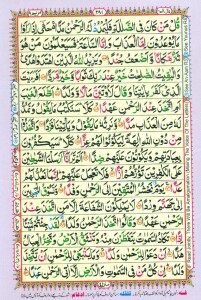 قُلْ مَنْ كَانَ فِي الضَّلٰلَةِ فَلْيَمْدُدْ لَهُ الرَّحْمٰنُ مَدًّا حَتّٰى اِذَا رَاَوْا
مَا يُوْعَدُوْنَ اِمَّا الْعَذَابَ وَاِمَّا السَّاعَةَ فَسَيَعْلَمُوْنَ مَنْ هُوَ
شَرٌّ مَّكَانًا وَّاَضْعَفُ جُنْدًا وَيَزِيْدُ اللّٰهُ الَّذِيْنَ اهْتَدَوْا هُدًى
وَالْبٰقِيٰتُ الصّٰلِحٰتُ خَيْرٌ عِنْدَ رَبِّكَ ثَوَابًا وَّخَيْرٌ مَّرَدًّا اَفَرَءَيْتَ
الَّذِيْ كَفَرَ بِاٰيٰتِنَا وَقَالَ لَاُوْتَيَنَّ مَالًا وَّوَلَدًا اَطَّلَعَ الْغَيْبَ
اَمِ اتَّخَذَ عِنْدَ الرَّحْمٰنِ عَهْدًا كَلَّا سَنَكْتُبُ مَا يَقُوْلُ وَنَمُدُّ
لَهٗ مِنَ الْعَذَابِ مَدًّا وَّنَرِثُهٗ مَا يَقُوْلُ وَيَاْتِيْنَا فَرْدًا وَاتَّخَذُوْا
مِنْ دُوْنِ اللّٰهِ اٰلِهَةً لِّيَكُوْنُوْا لَهُمْ عِزًّا كَلَّا سَيَكْفُرُوْنَ
بِعِبَادَتِهِمْ وَيَكُوْنُوْنَ عَلَيْهِمْ ضِدًّا اَلَمْ تَرَ اَنَّا اَرْسَلْنَا الشَّيٰطِيْنَ
عَلَى الْكٰفِرِيْنَ تَؤُزُّهُمْ اَزًّا فَلَا تَعْجَلْ عَلَيْهِمْ اِنَّمَا نَعُدُّ لَهُمْ
عَدًّا يَوْمَ نَحْشُرُ الْمُتَّقِيْنَ اِلَى الرَّحْمٰنِ وَفْدًا وَّنَسُوْقُ الْمُجْرِمِيْنَ
اِلٰى جَهَنَّمَ وِرْدًا لَا يَمْلِكُوْنَ الشَّفَاعَةَ اِلَّا مَنِ اتَّخَذَ عِنْدَ
الرَّحْمٰنِ عَهْدًا وَقَالُوا اتَّخَذَ الرَّحْمٰنُ وَلَدًا لَقَدْ جِئْتُمْ شَيْئًا
اِدًّا تَكَادُ السَّمٰوٰتُ يَتَفَطَّرْنَ مِنْهُ وَتَنْشَقُّ الْاَرْضُ وَتَخِرُّ الْجِبَالُ
هَدًّا اَنْ دَعَوْا لِلرَّحْمٰنِ وَلَدًا وَمَا يَنْبَغِيْ لِلرَّحْمٰنِ اَنْ يَّتَّخِذَ
وَلَدًا اِنْ كُلُّ مَنْ فِي السَّمٰوٰتِ وَالْاَرْضِ اِلَّا اٰتِي الرَّحْمٰنِ عَبْدًا